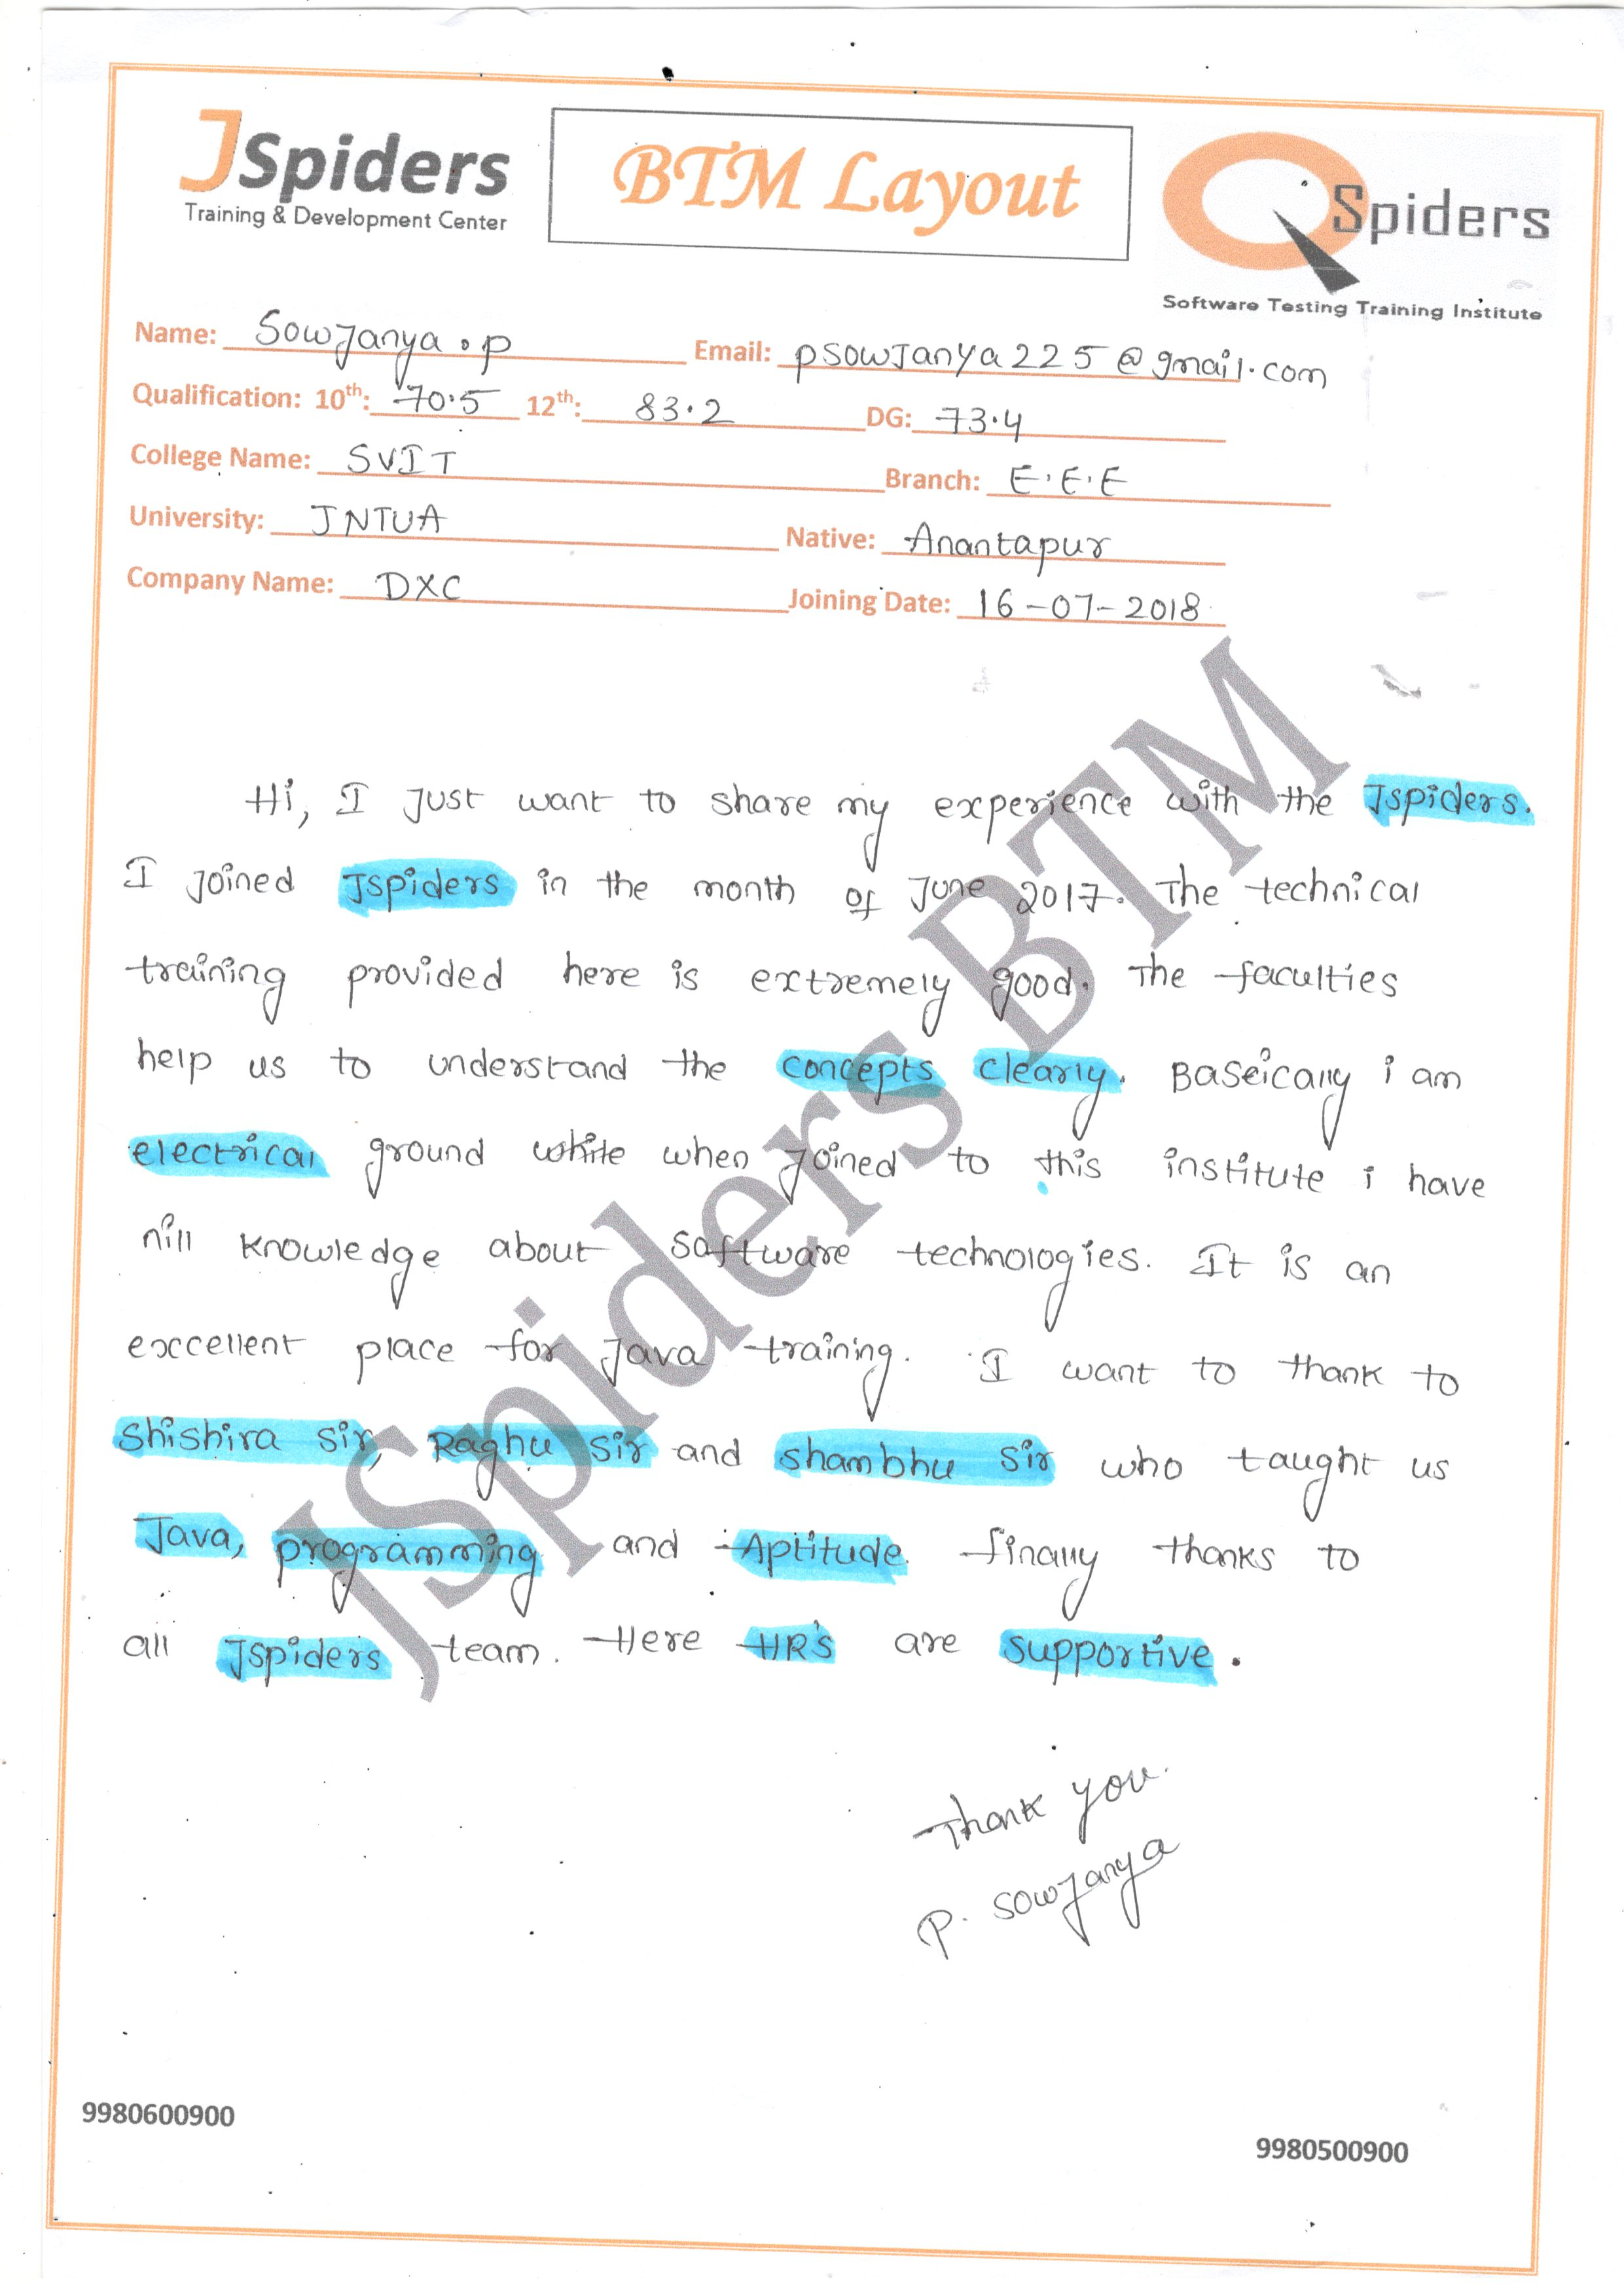 JSpiders
Training & Development Center
BTM Layout
QSpiders
Software Testing Training Institute
Name: Sowjanya . p Email: psowjanya225@gmail.com
Qualification: 10th: 70.5 12th: 83.2 DG: 73.4
College Name: SVIT Branch: E.E.E
University: JNTUA Native: Anantapur
Company Name: DXC Joining Date: 16-07-2018
Hi, I Just want to share my experience with the Jspiders.
I Joined Jspiders in the month of June 2017. The technical
training provided here is extremely good. The faculties
help us to understand the concepts clearly. Baseically i am
electrical ground while when Joined to this institute i have
nill knowledge about software technologies. It is an
exccellent place for Java training. I want to thank to
Shishira Sir, Raghu Sir and shambhu Sir who taught us
Java, programming and Aptitude. finally thanks to
all Jspiders team. Here HR's are supportive.
Thank you.
P. Sowjanya
JSpiders BTM
9980600900
9980500900